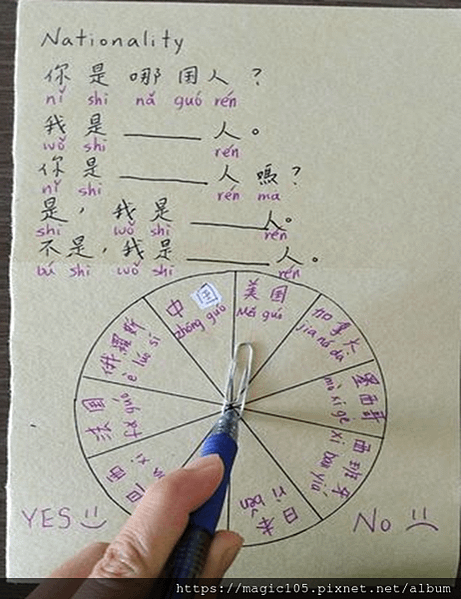 Nationality
你 是 哪 国 人 ?
nǐ shì nǎ guó rén
我 是 ______ 人。
wǒ shì rén
你 是 ______ 人 嗎?
nǐ shì rén ma
是, 我 是 ______人。
shì wǒ shì rén
不是,我是______人。
bú shì wǒ shì rén
中国
zhōng guó
美国
Měi guó
加拿大
jiā ná dà
墨西哥
mò xī gē
西班牙
xī bān yá
日本
rì běn
法国
fǎ guó
俄羅斯
é luó sī
YES
No
https://magic105.pixnet.net/album